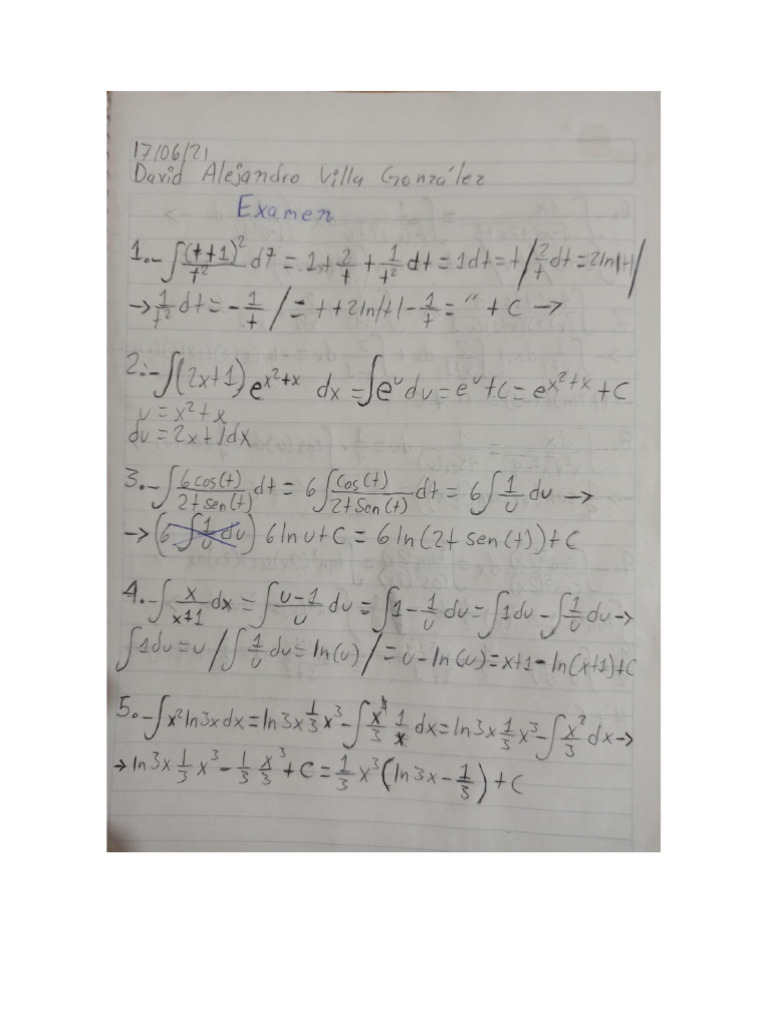 17/06/21
David Alejandro Villa González
Examen
1.- ∫(t+1)²/t² dt = 1+2/t+1/t² dt = 1dt = t / 2/t dt = 2ln|t| /
→ 1/t² dt = -1/t / = t+2ln|t|-1/t = " + C →
2.- ∫(2x+1)e^(x²+x) dx = ∫e^u du = e^u+C = e^(x²+x) + C
u = x²+x
du = 2x+1dx
3.- ∫6cos(t)/(2+sen(t)) dt = 6∫cos(t)/(2+Sen(t)) dt = 6∫1/u du →
→ (6∫1/u du) 6lnu+C = 6ln(2+sen(t))+C
4.- ∫x/(x+1) dx = ∫(u-1)/u du = ∫1-1/u du = ∫1du-∫1/u du →
∫1du = u / ∫1/u du = ln(u) / = u-ln(u) = x+1-ln(x+1)+C
5.- ∫x²ln3xdx = ln3x 1/3 x³ - ∫x³/3 1/x dx = ln3x 1/3 x³ - ∫x²/3 dx →
→ ln3x 1/3 x³ - 1/3 x³/3 + C = 1/3 x³(ln3x - 1/3) + C